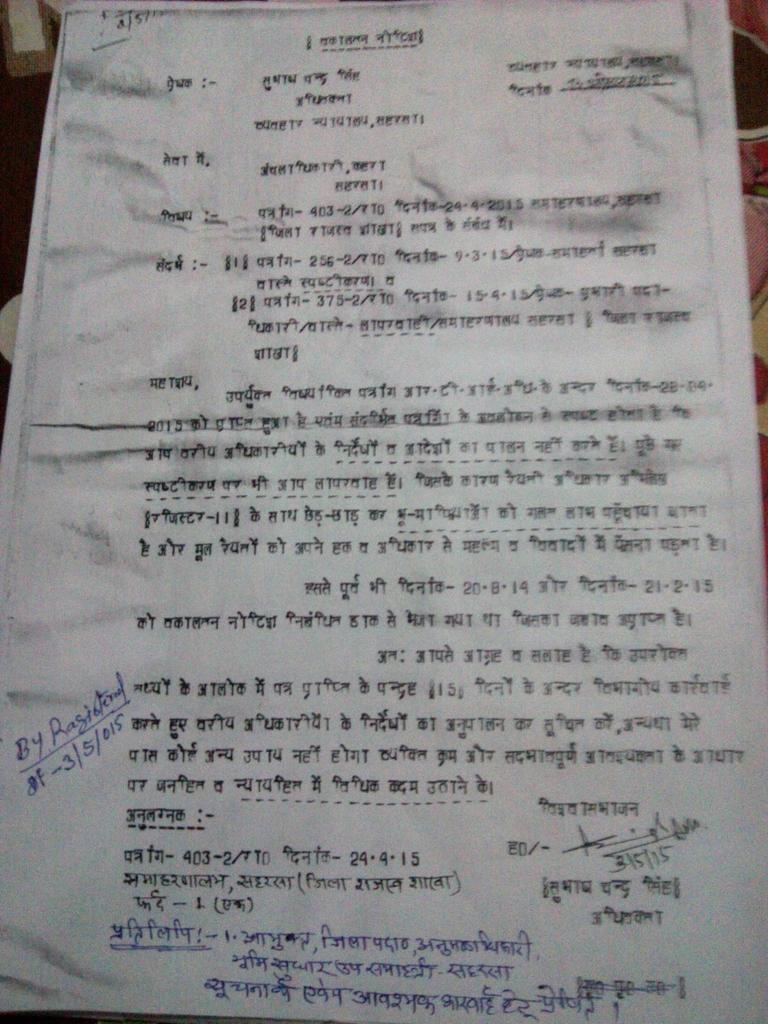 2/5/
§ वकालतन नोटिश§
व्यवहार न्यायालय,सहरसा।
प्रेषक :- सुभाष चन्द्र सिंह दिनांक
अधिवक्ता
व्यवहार न्यायालय,सहरसा।
सेवा में,
अंचलाधिकारी,कहरा
सहरसा।
विषय :- पत्रांग- 403-2/रा0 दिनांक-24-4-2015 समाहरणालय,सहरसा
§जिला राजस्व शाखा§ सपत्र के संबंध में।
संदर्भ :- §1§ पत्रांग- 256-2/रा0 दिनांक- 9-3-15/प्रेषक-समाहर्ता सहरसा
वास्ते स्पष्टीकरण। व
§2§ पत्रांग- 375-2/रा0 दिनांक- 15-4-15/प्रेषक- प्रभारी पदा-
धिकारी/वास्ते- लापरवाही/समाहरणालय सहरसा § जिला राजस्व
शाखा§
महाशय,
उपर्युक्त विषयांकित पत्रांग आर-टी-आई-अधि-के अन्दर दिनांक-28-04-
2015 को प्राप्त हुआ है एवंम संदर्भित पत्रांगों के अवलोकन से स्पष्ट होता है कि
आप वरीय अधिकारीयों के निर्देशों व आदेशों का पालन नहीं करते हैं। पूछे गए
स्पष्टीकरण पर भी आप लापरवाह हैं। जिसके कारण रैयती अधिकार अभिलेख
§रजिस्टर-11§ के साथ छेड़-छाड़ कर भू-माफियाओं को गलत लाभ पहुँचाया जाता
है और मूल रैयतों को अपने हक व अधिकार से महरूम व विवादों में फँसना पड़ता है।
इससे पूर्व भी दिनांक- 20-8-14 और दिनांक- 21-2-15
को वकालतन नोटिश निबंधित डाक से भेजा गया था जिसका जवाब अप्राप्त है।
अत: आपसे आग्रह व सलाह है कि उपरोक्त
तथ्यों के आलोक में पत्र प्राप्ति के पन्द्रह §15§ दिनों के अन्दर विभागीय कार्रवाई
करते हुए वरीय अधिकारीयों के निर्देशों का अनुपालन कर सूचित करें,अन्यथा मेरे
पास कोई अन्य उपाय नहीं होगा व्यक्ति क्रम और सदभावपूर्ण आवश्यकता के आधार
पर जनहित व न्यायहित में विधिक कदम उठाने के।
By Registered
दि-3/5/015
विश्वासभाजन
अनुलग्नक :-
ह0/-
3/5/15
पत्रांग- 403-2/रा0 दिनांक- 24-4-15
§सुभाष चन्द्र सिंह§
समाहरणालय, सहरसा (जिला राजस्व शाखा)
अधिवक्ता
फर्द - 1 (एक)
प्रतिलिपि:- 1. आयुक्त, जिला पदा0, अनुमंडलाधिकारी,
भूमि सुधार उप समाहर्ता - सहरसा
सूचनार्थ एवंम आवश्यक कारवाई हेतु प्रेषित।